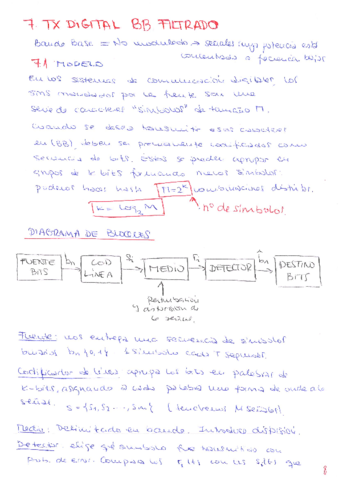 7. TX DIGITAL BB FILTRADO
Banda Base = No modulada → señales cuya potencia está
concentrada a frecuencias bajas
7.1 MODELO
En los sistemas de comunicación digitales, los
sms por la fuente son una
serie de caracteres "símbolos" de tamaño M.
Cuando se desea transmitir esos caracteres
en (BB), deben ser previamente codificados como
secuencia de bits. Estos se pueden agrupar en
grupos de k bits formando nuevos símbolos.
podemos hacer hasta M=2^k combinaciones distintas.
k = log₂ M
nº de símbolos.
DIAGRAMA DE BLOQUES
FUENTE BITS
bn
COD LÍNEA
Si
MEDIO
ri
DETECTOR
b̂n
DESTINO BITS
y distorsión de
la señal.
Fuente: nos entrega una secuencia de símbolos
binarios bn{0,1} 1 símbolo cada T segundos.
Codificador de línea: agrupa los bits en palabras de
k-bits, asignando a cada palabra una forma de onda o
señal.
S = {s1, s2, ..., sM} (tendremos M señales)
Medio: Delimitado en ancho. Introduce distorsión.
Detector: elige qué símbolo fue transmitido con
prob. de error. Compara los ri(t) con los si(t) que
8